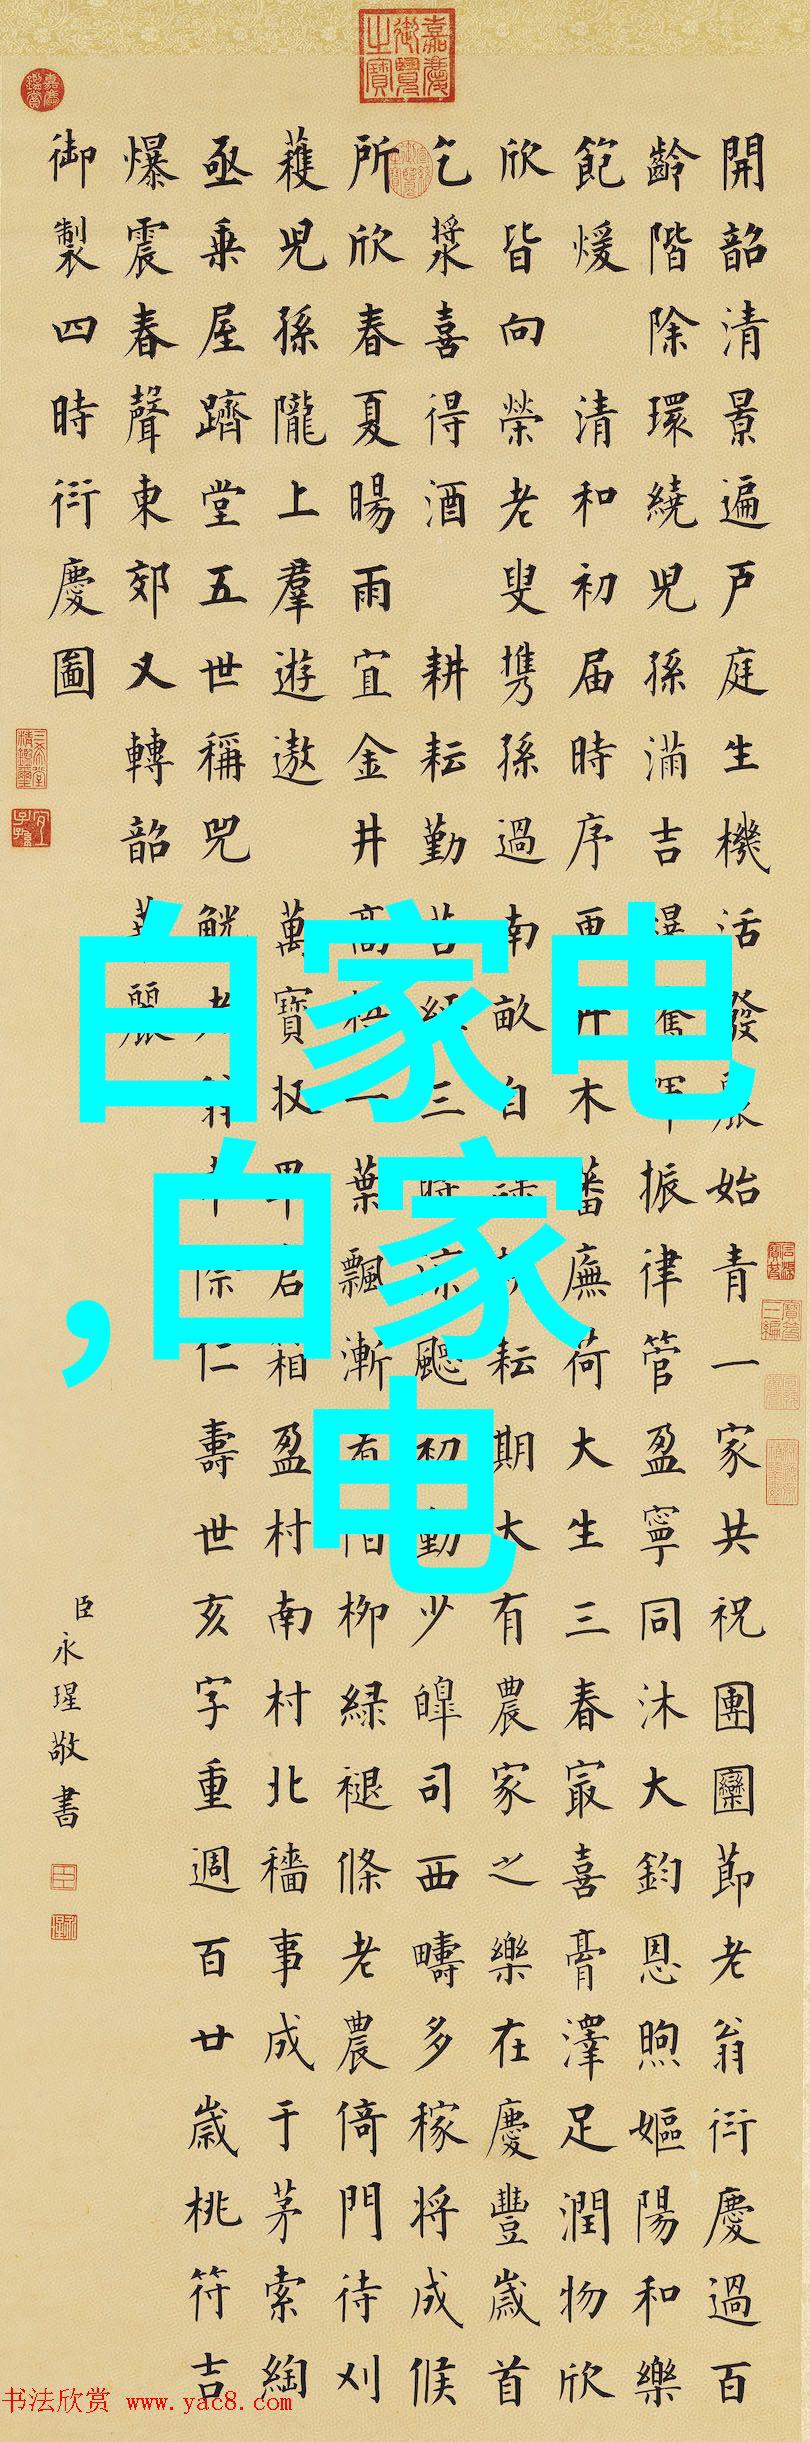 白家电
,白家
电
嘉慶御覽之寶
嘉慶鑑賞
開韶清景遍戶庭生機活發展始青一家共祝團圞節老翁衍慶過百
齡階除環繞兒孫滿吉振律管盈寧同沐大鈞恩煦嫗陽和樂
飽煖 清和初届時序木蕃廡荷大生三春冣喜膏澤足潤物欣
欣皆向榮老叟攜孫過南畝自耘期大有農家之樂在慶豐歲首
乞漿喜得酒 耕耘勤苦經三時涼颸初動少皥司西疇多稼將成候
所欣春夏暘雨宜金井高梧一葉飄漸看陌柳緑褪條老農倚門待刈
穫兒孫隴上羣遊遨 萬寶収畢君箱盈村南村北穡事成于茅索綯
亟乗屋躋堂五世稱兕觥老翁際仁壽世亥字重週百廿歲桃符吉
爆震春聲東郊又轉韶華麗
御製四時衍慶圖
臣永瑆敬書
三希堂精鑑璽
宜子孫
书法欣赏 www.yac8.com